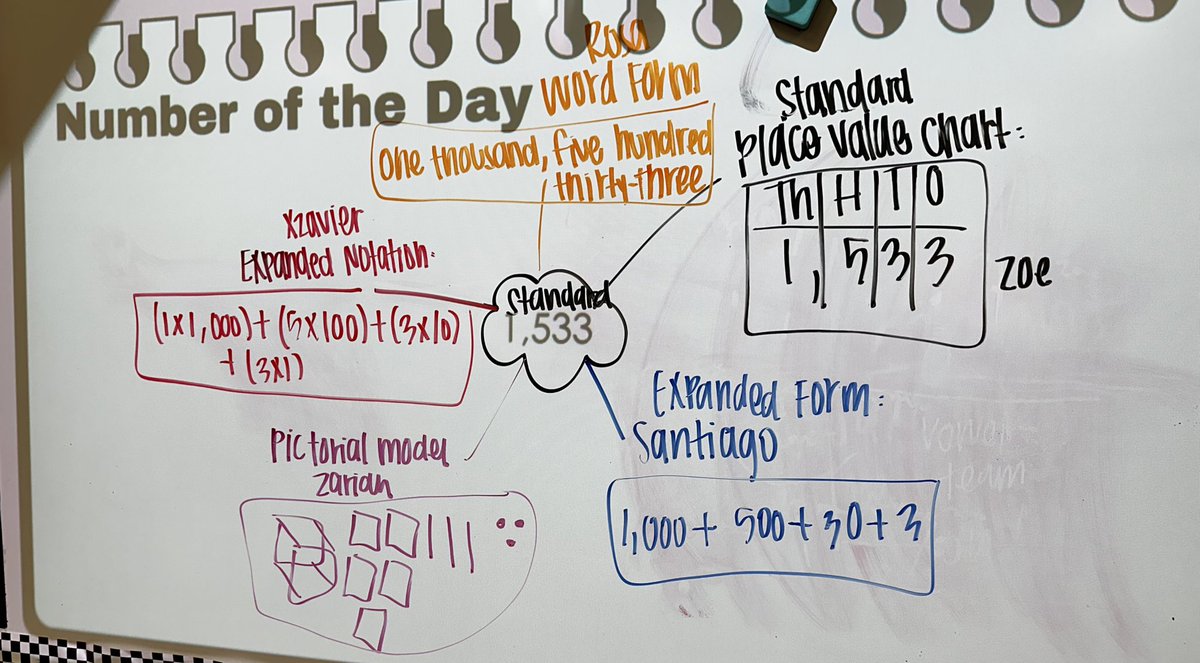 Number of the Day
Rosa
Word Form
one thousand, five hundred
thirty-three
Standard
Place Value Chart:
Th H T O
1, 5 3 3
Zoe
Xzavier
Expanded Notation:
(1x1,000)+(5x100)+(3x10)
+(3x1)
Standard
1,533
Pictorial model
Zariah
Expanded Form:
Santiago
1,000+ 500+30+3
team